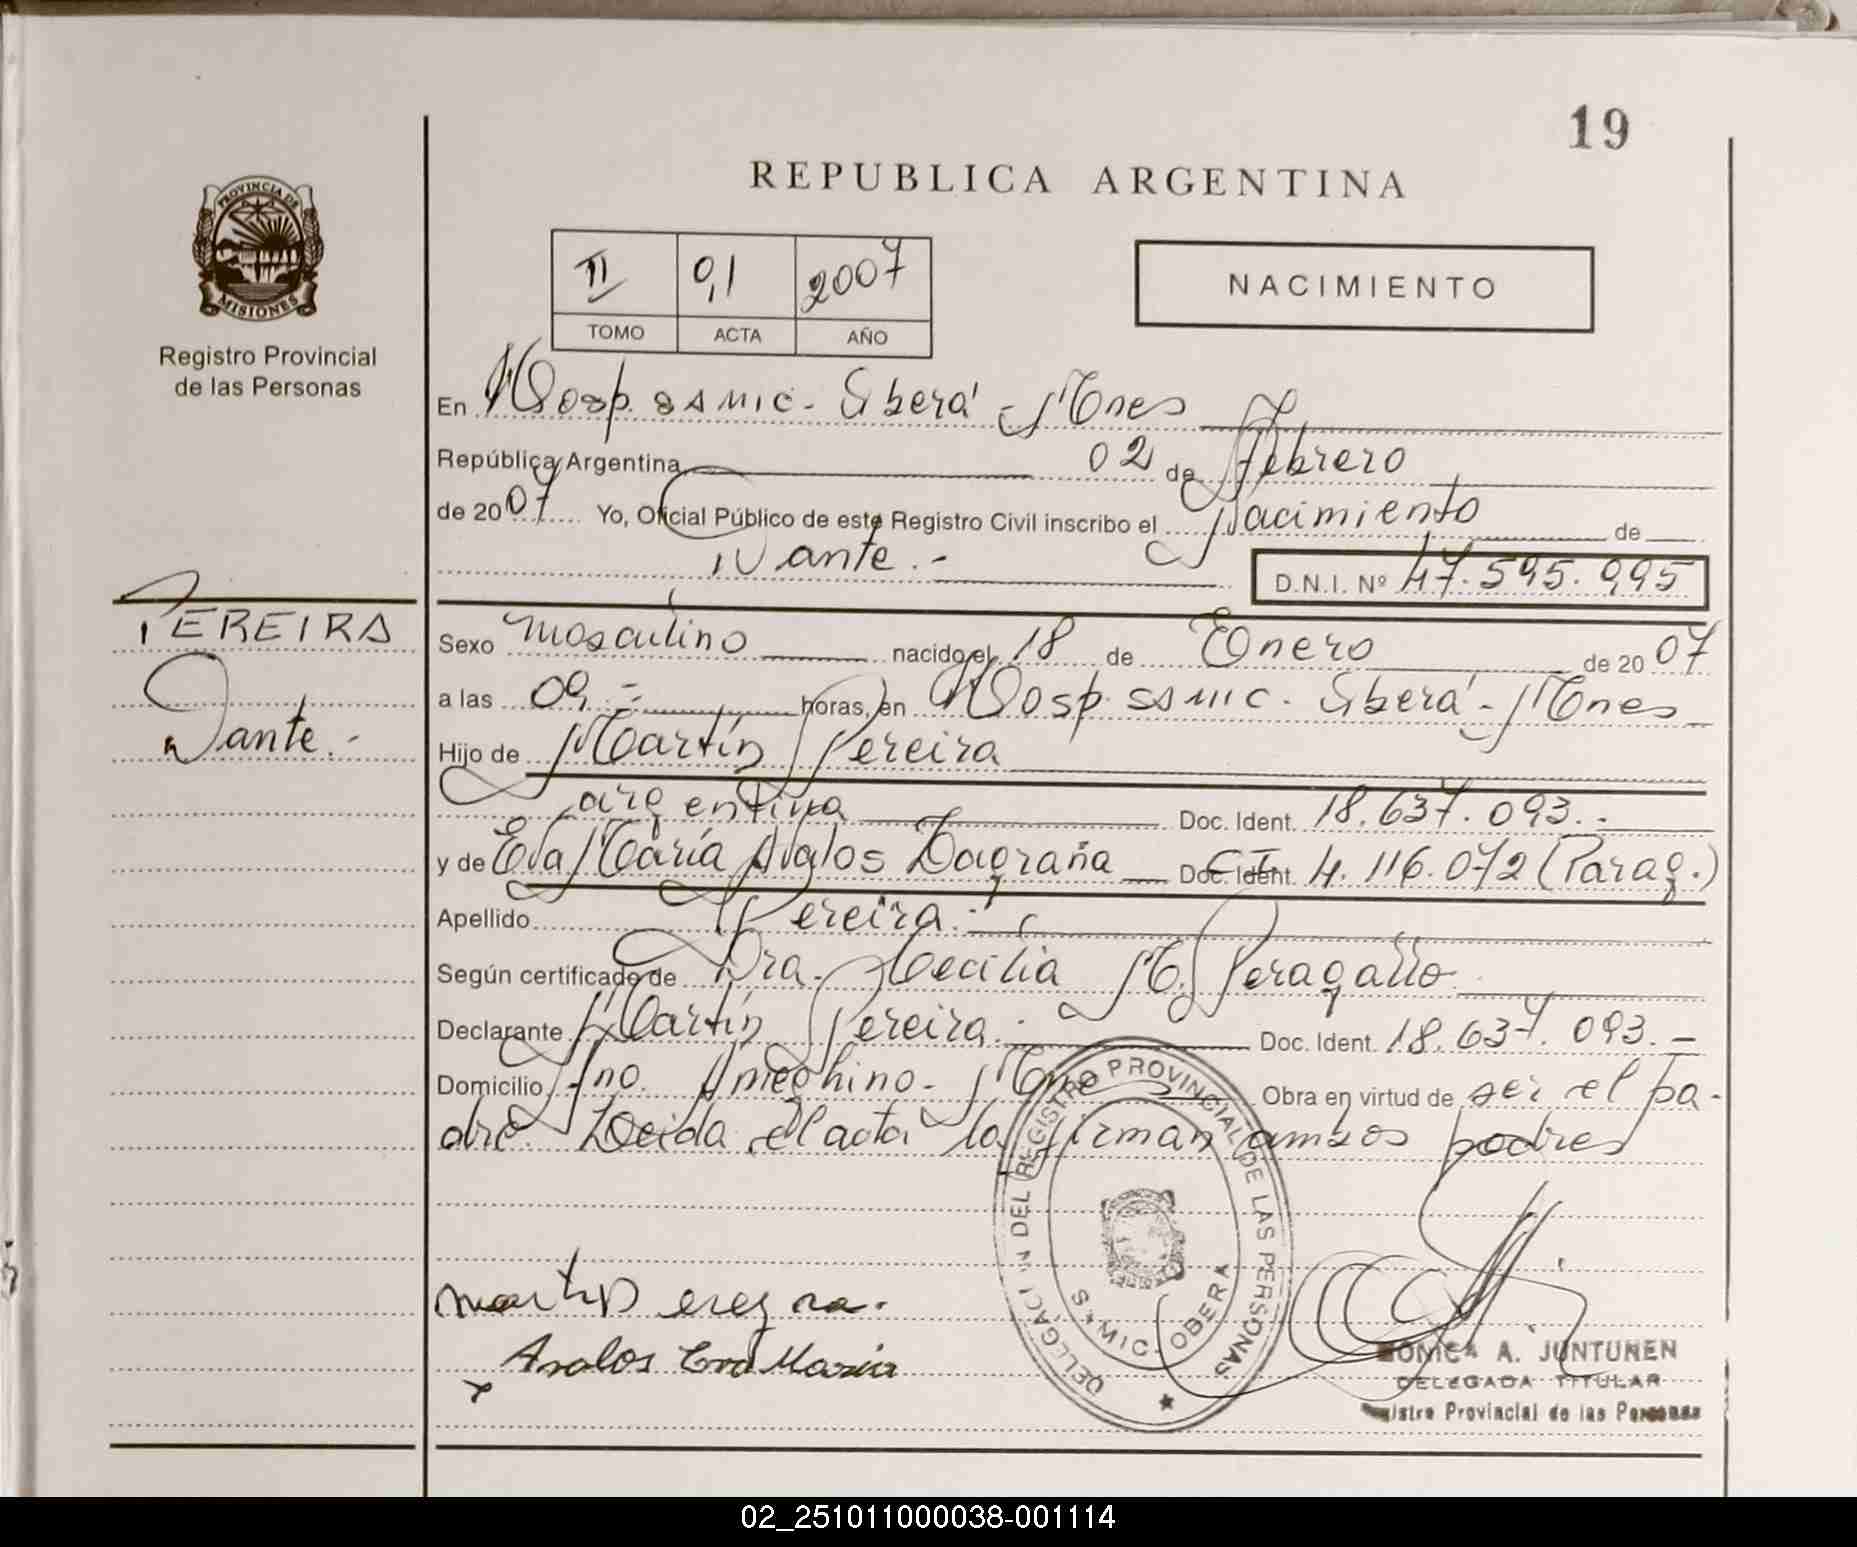 19
REPUBLICA ARGENTINA
PROVINCIA DE
MISIONES
Registro Provincial
de las Personas
II 91 2007
TOMO ACTA AÑO
NACIMIENTO
En Hosp. SAMIC - Oberá Mnes
República Argentina 02 de Febrero
de 2007 Yo, Oficial Público de este Registro Civil inscribo el Nacimiento de
Dante.-
D.N.I. Nº 47.595.995
PEREIRA
Dante.-
Sexo Masculino nacido el 18 de Enero de 2007
a las 09,- horas, en Hosp. SAMIC. Oberá - Mnes
Hijo de Martín Pereira
argentina Doc. Ident. 18.637.093.-
y de Eva María Avalos Dagraña Doc. Ident. C I 4.116.072 (Parag.)
Apellido Pereira.-
Según certificado de Dra. Cecilia M. Peragallo
Declarante Martín Pereira. Doc. Ident. 18.637.093.-
Domicilio Fno. Ameghino - Mnes Obra en virtud de ser el pa-
dre. Leida el acta la firman ambos padres
Avalos Eva Maria
DELEGACION DEL REGISTRO PROVINCIAL DE LAS PERSONAS
OBERA
MONICA A. JUNTUNEN
DELEGADA TITULAR
Registro Provincial de las Personas
02_251011000038-001114